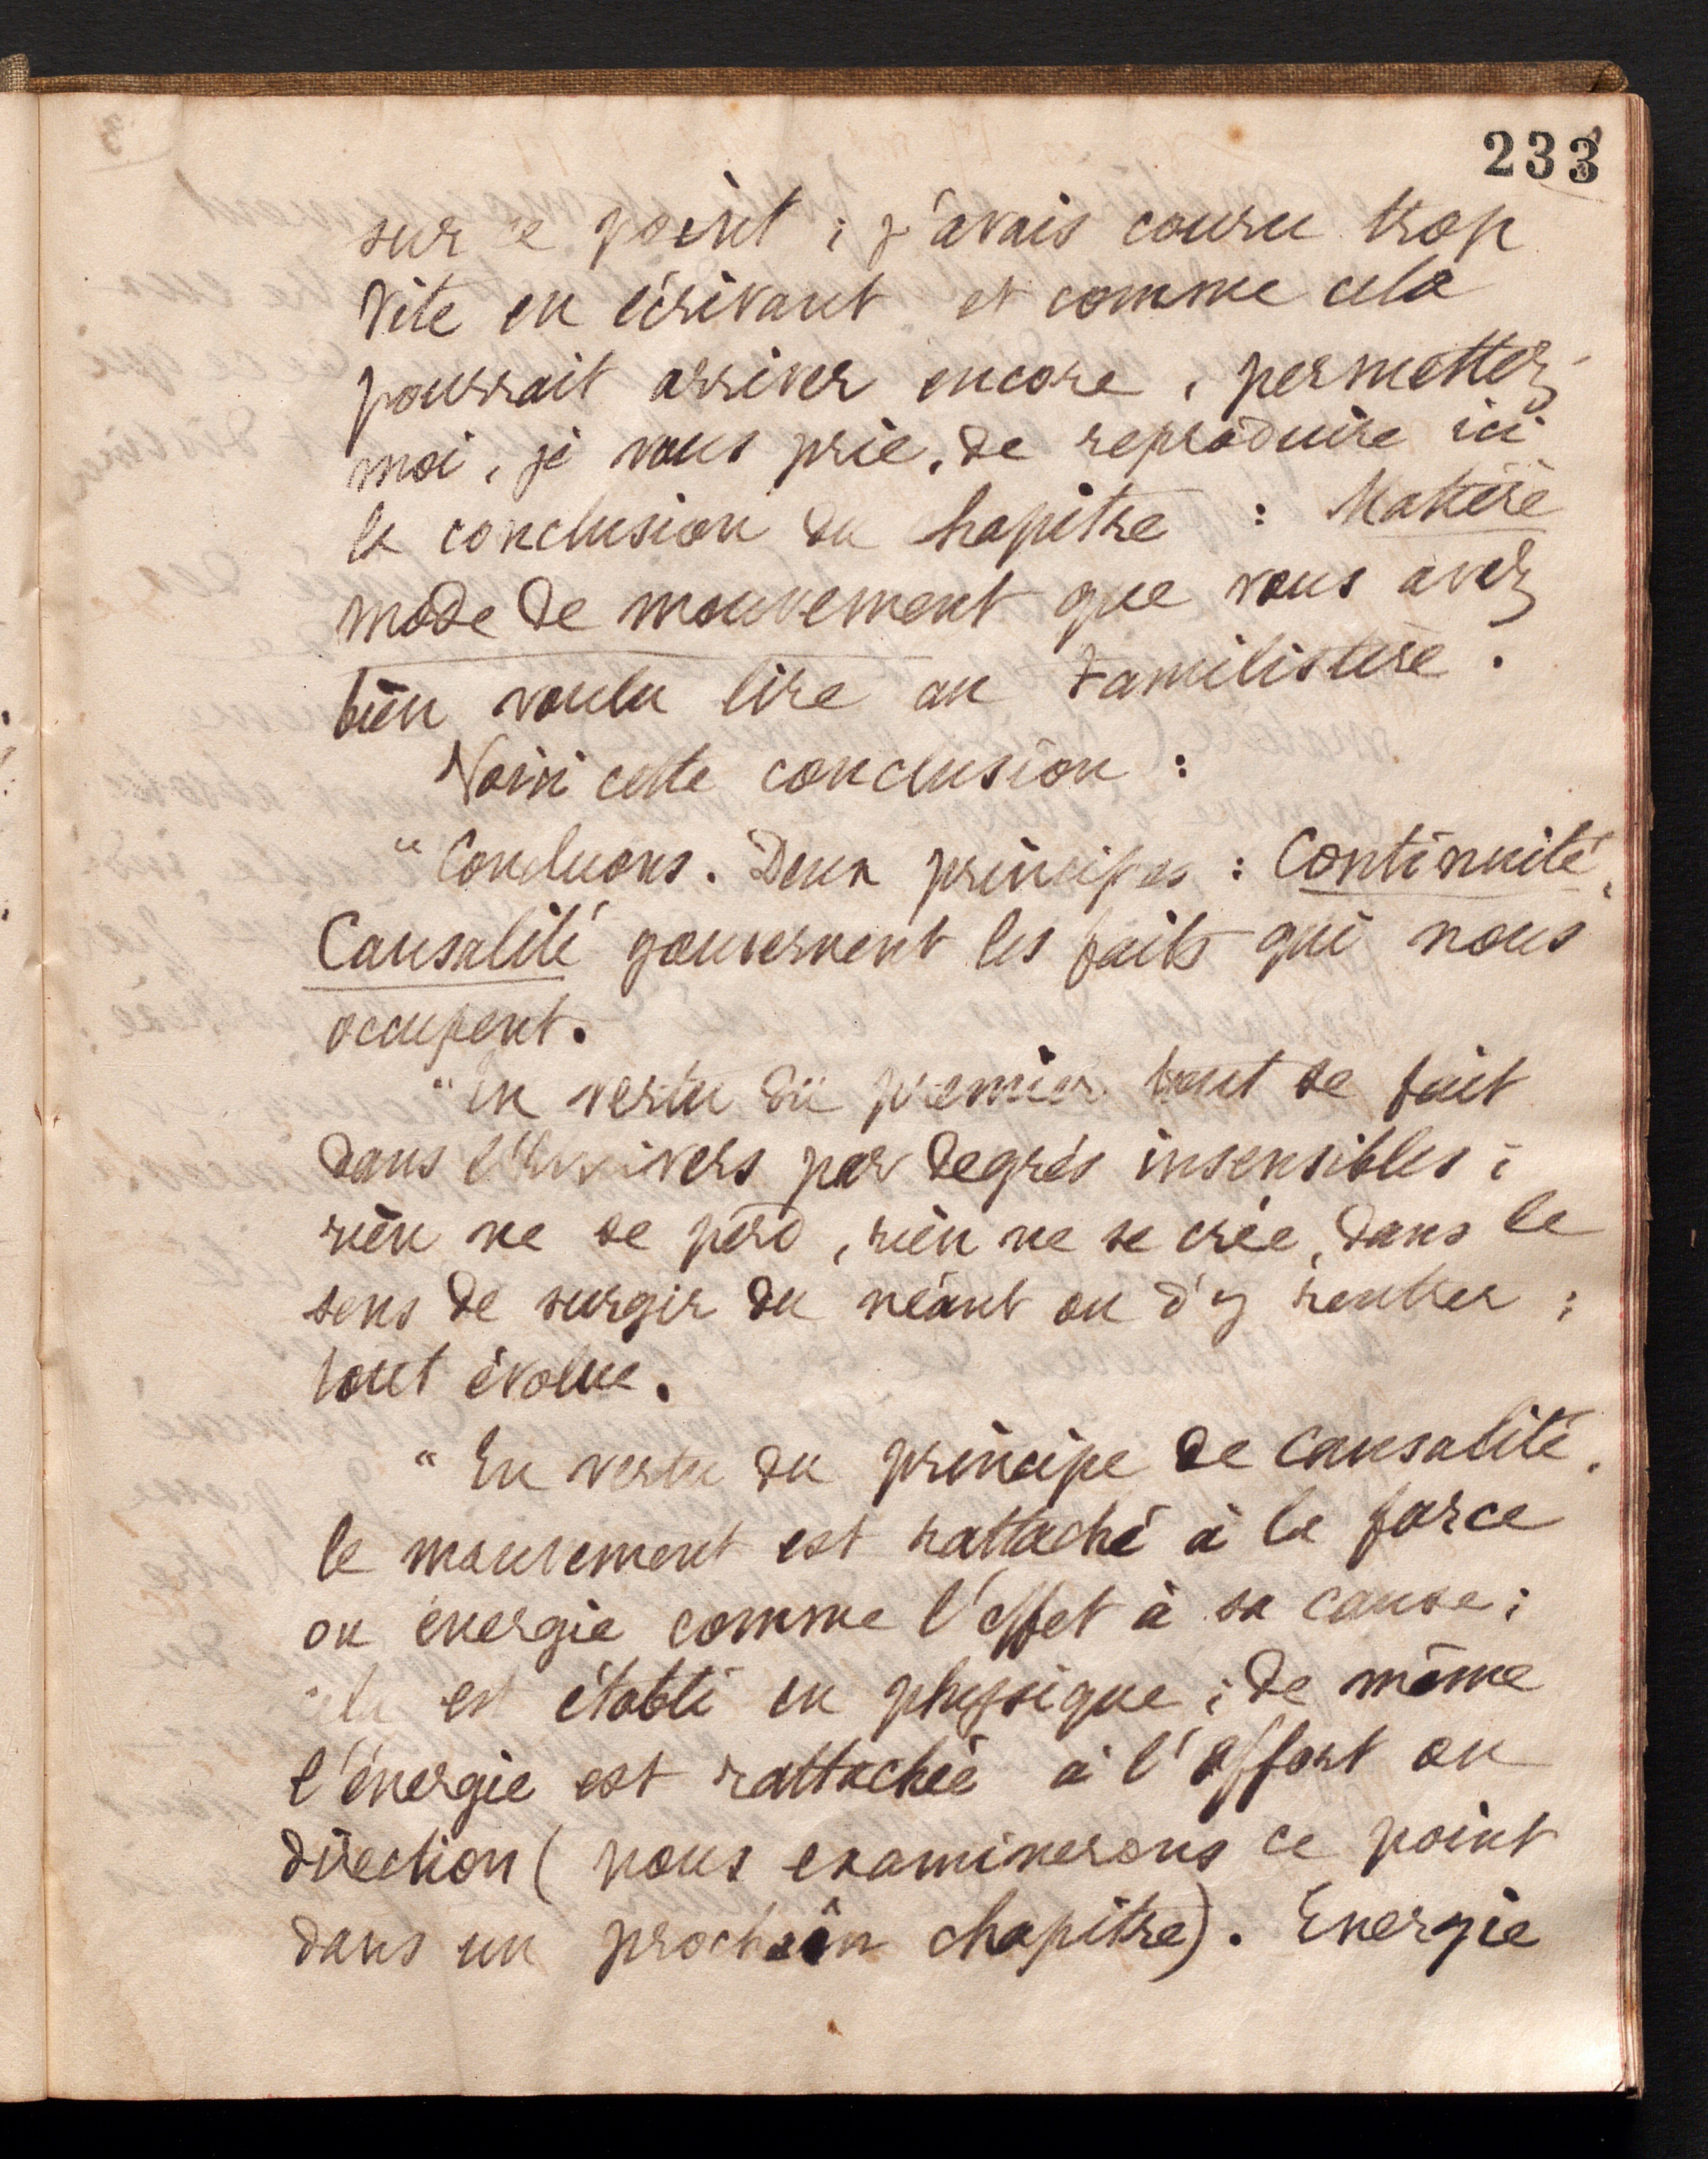 233
sur ce point ; j'avais couru trop
vite en écrivant et comme cela
pourrait arriver encore, permettez-
moi, je vous prie, de reproduire ici
la conclusion du chapitre : Matière
mode de mouvement que vous avez
bien voulu lire au Familistère.
Voici cette conclusion :
"Concluons. Deux principes : Continuité,
Causalité gouvernent les faits qui nous
occupent.
"En vertu du premier tout se fait
dans l'Univers par degrés insensibles ;
rien ne se perd, rien ne se crée, dans le
sens de surgir du néant ou d'y rentrer ;
tout évolue.
"En vertu du principe de Causalité,
le mouvement est rattaché à la force
ou énergie comme l'effet à sa cause ;
cela est établi en physique ; de même
l'énergie est rattachée à l'effort ou
direction (nous examinerons ce point
dans un prochain chapitre). Energie